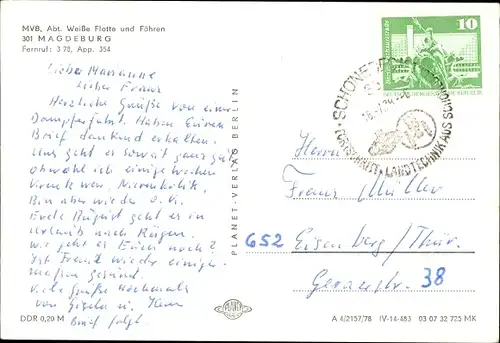 MVB, Abt. Weiße Flotte und Fähren
301 MAGDEBURG
Fernruf: 3 78, App. 354
Liebe Marianne
Lieber Franz
Herzliche Grüße von einer
Dampferfahrt. Haben Euren
Brief dankend erhalten.
Uns geht es soweit ganz gut
obwohl ich einige Wochen
krank war. Nierenkolik.
Bin aber wieder o.k.
Ende August geht es in
Urlaub nach Rügen.
Wie geht es Euch noch?
Ist Franz wieder einiger-
maßen gesund.
Viele Grüße nochmals
von Gisela u.
Brief folgt.
DDR 0,20 M
PLANET-VERLAG BERLIN
PLANET
10
SCHÖNEBECK
FORTSCHRITT-LANDTECHNIK AUS SCHÖNEBECK
Herrn
Franz Müller
652 Eisenberg/Thür.
Geraerstr. 38
A 4/2157/78 IV-14-483 03 07 32 725 MK